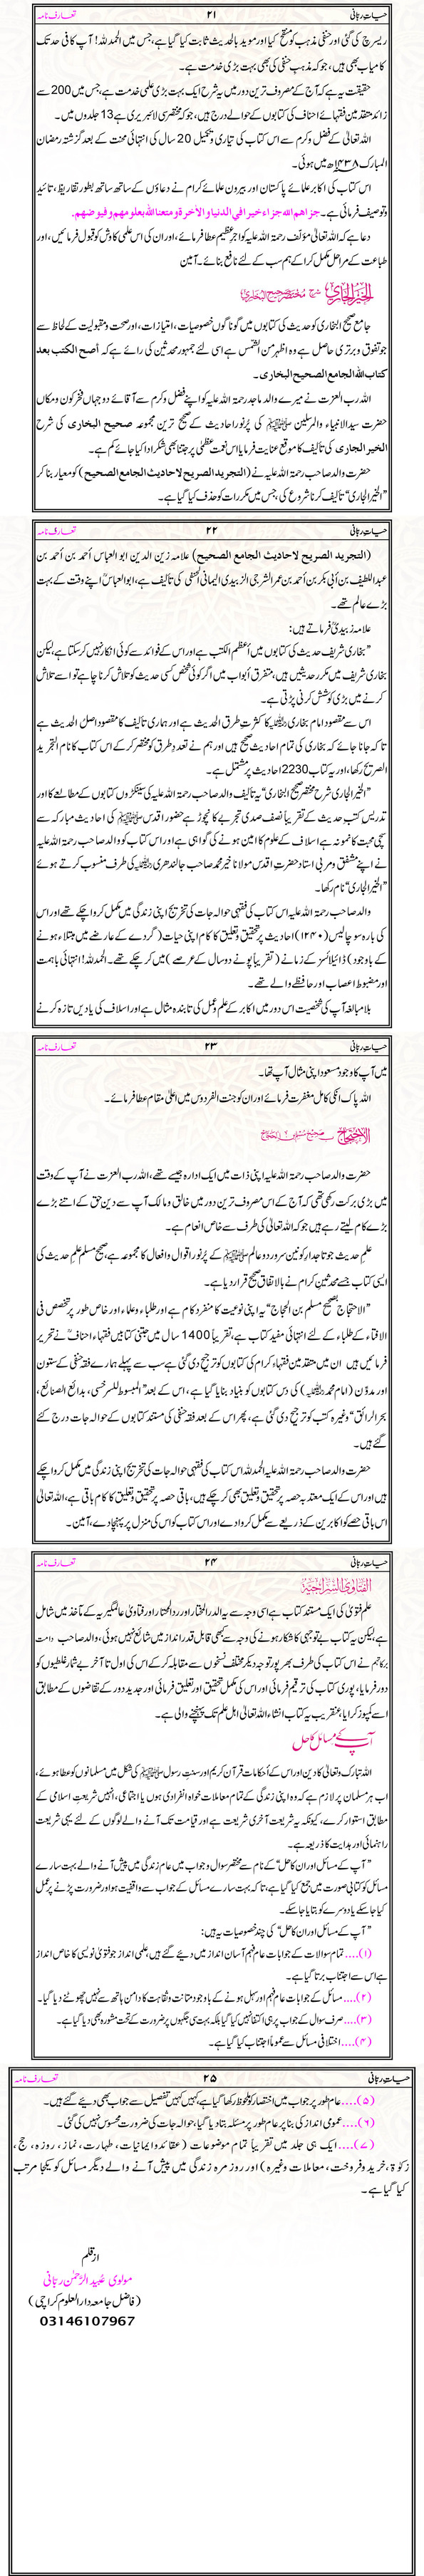 حیاتِ ربّانی ۲۱ تعارف نامہ
ریسرچ کی گئی اور حنفی مذہب کو منقح کیا اور موید بالحدیث ثابت کیا گیا ہے، جس میں الحمدللہ! آپ کافی حد تک
کامیاب بھی ہیں، جو کہ مذہب حنفی کی بھی بہت بڑی خدمت ہے۔
حقیقت یہ ہے کہ آج کے مصروف ترین دور میں یہ شرح ایک بہت بڑی علمی خدمت ہے، جس میں 200 سے
زائد متقدمین فقہائے احناف کی کتابوں کے حوالے درج ہیں، جو کہ مختصر سی لائبریری ہے 13 جلدوں میں۔
اللہ تعالیٰ کے فضل و کرم سے اس کتاب کی تیاری و تکمیل 20 سال کی انتہائی محنت کے بعد گزشتہ رمضان
المبارک ۱۴۳۸ھ میں ہوئی۔
اس کتاب کی اکابر علمائے پاکستان اور بیرون علمائے کرام نے دعاؤں کے ساتھ ساتھ بطور تقاریظ، تائید
وتوصیف فرمائی ہے۔ جزاھم اللہ جزاء خیرا فی الدنیا و الآخرة و متعنا اللہ بعلومھم و فیوضھم۔
دعا ہے کہ اللہ تعالیٰ مؤلف رحمۃ اللہ علیہ کو اجرِ عظیم عطا فرمائے، اور ان کی اس علمی کاوش کو قبول فرمائیں، اور
طباعت کے مراحل مکمل کرا کے ہم سب کے لئے نافع بنائے۔ آمین
الخیر الجاری شرح مختصر صحیح البخاری
جامع صحیح البخاری کو حدیث کی کتابوں میں گوناگوں خصوصیات، امتیازات، اور صحت و مقبولیت کے لحاظ سے
جو تفوق و برتری حاصل ہے وہ اظہر من الشمس ہے اسی لئے جمہور محدثین کی رائے ہے کہ أصح الکتب بعد
کتاب اللہ الجامع الصحیح البخاری۔
اللہ رب العزت نے میرے والد ماجد رحمۃ اللہ علیہ کو اپنے فضل و کرم سے آقائے دو جہاں فخر کون و مکاں
حضرت سید الانبیاء والمرسلین ﷺ کی پُر نور احادیث کے صحیح ترین مجموعہ صحیح البخاری کی شرح
الخیر الجاری کی تألیف کا موقع عنایت فرمایا اس نعمت عظمیٰ پر جتنا بھی شکر ادا کیا جائے کم ہے۔
حضرت والد صاحب رحمۃ اللہ علیہ نے (التجرید الصریح لاحادیث الجامع الصحیح) کو معیار بنا کر
”الخیر الجاری“ تألیف کرنا شروع کی، جس میں مکررات کو حذف کیا گیا ہے۔
حیاتِ ربّانی ۲۲ تعارف نامہ
(التجرید الصریح لاحادیث الجامع الصحیح) علامہ زین الدین ابو العباس أحمد بن أحمد بن
عبد اللطیف بن أبی بکر بن أحمد بن عمر الشرجی الزبیدی الیمانی الحنفی کی تألیف ہے، ابو العباسؒ اپنے وقت کے بہت
بڑے عالم تھے۔
علامہ زبیدیؒ فرماتے ہیں:
”بخاری شریف حدیث کی کتابوں میں أعظم الکتب ہے اور اس کے فوائد سے کوئی انکار نہیں کر سکتا ہے، لیکن
بخاری شریف میں مکرر حدیثیں ہیں، متفرق أبواب میں اگر کوئی شخص کسی حدیث کو تلاش کرنا چاہے تو اسے تلاش
کرنے میں بڑی کوشش کرنی پڑتی ہے۔
اس سے مقصود امام بخاریؒ کا کثرتِ طرق الحدیث ہے اور ہماری تألیف کا مقصود اصل الحدیث ہے
تا کہ جانا جائے کہ بخاری کی تمام احادیث صحیح ہیں اور ہم نے تعددِ طرق کو مختصر کر کے اس کتاب کا نام التجرید
الصریح رکھا، اور یہ کتاب 2230 احادیث پر مشتمل ہے۔
”الخیر الجاری شرح مختصر صحیح البخاری“ یہ تألیف والد صاحب رحمۃ اللہ علیہ کی سینکڑوں کتابوں کے مطالعے کا اور
تدریس کتب حدیث کے تقریباً نصف صدی تجربے کا نچوڑ ہے حضور اقدس ﷺ کی احادیث مبارکہ سے
سچی محبت کا نمونہ ہے اسلاف کے علوم کا امین ہونے کی گواہی ہے اور اس کتاب کو والد صاحب رحمۃ اللہ علیہ
نے اپنے مشفق و مربی استاد حضرتِ اقدس مولانا خیر محمد صاحب جالندھریؒ کی طرف منسوب کرتے ہوئے
”الخیر الجاری“ نام رکھا۔
والد صاحب رحمۃ اللہ علیہ اس کتاب کی فقہی حوالہ جات کی تخریج اپنی زندگی میں مکمل کروا چکے تھے اور اس
کی بارہ سو چالیس (۱۲۴۰) احادیث پر تحقیق و تعلیق کا کام اپنی حیات (گردے کے عارضے میں مبتلاء ہونے
کے باوجود) ڈائیلائسز کے زمانے (تقریباً پونے دو سال کے عرصے) میں کر چکے تھے۔ الحمدللہ! انتہائی باہمت
اور مضبوط اعصاب اور حافظے والے تھے۔
بلا مبالغہ آپ کی شخصیت اس دور میں اکابر کے علم و عمل کی تابندہ مثال ہے اور اسلاف کی یادیں تازہ کرنے
حیاتِ ربّانی ۲۳ تعارف نامہ
میں آپ کا وجود مسعود اپنی مثال آپ تھا۔
اللہ پاک انکی کامل مغفرت فرمائے اور ان کو جنت الفردوس میں اعلیٰ مقام عطا فرمائے۔
الاحتجاج بصحیح مسلم بن الحجاج
حضرت والد صاحب رحمۃ اللہ علیہ اپنی ذات میں ایک ادارہ جیسے تھے، اللہ رب العزت نے آپ کے وقت
میں بڑی برکت رکھی تھی کہ آج کے اس مصروف ترین دور میں خالق و مالک آپ سے دین حق کے اتنے بڑے
بڑے کام لیتے رہے ہیں جو کہ اللہ تعالیٰ کی طرف سے خاص انعام ہے۔
علمِ حدیث جو تاجدارِ کونین سرورِ دو عالم ﷺ کے پر نور اقوال و افعال کا مجموعہ ہے، صحیح مسلم علمِ حدیث کی
ایسی کتاب جسے محدثینِ کرام نے بالاتفاق صحیح قرار دیا ہے۔
”الاحتجاج بصحیح مسلم بن الحجاج“ یہ اپنی نوعیت کا منفرد کام ہے اور طلباء و علماء اور خاص طور پر تخصص فی
الافتاء کے طلباء کے لئے انتہائی مفید کتاب ہے، تقریباً 1400 سال میں جتنی کتابیں فقہاء احنافؒ نے تحریر
فرمائیں ہیں ان میں متقدمین فقہاءِ کرام کی کتابوں کو ترجیح دی گئی ہے سب سے پہلے ہمارے فقہ حنفی کے ستون
اور مدوّن (امام محمدؒ) کی دس کتابوں کو بنیاد بنایا گیا ہے، اس کے بعد ”المبسوط للسرخسی، بدائع الصنائع،
بحر الرائق“ وغیرہ کتب کو ترجیح دی گئی ہے، پھر اس کے بعد فقہ حنفی کی مستند کتابوں کے حوالہ جات درج کئے
گئے ہیں۔
حضرت والد صاحب رحمۃ اللہ علیہ الحمدللہ اس کتاب کی فقہی حوالہ جات کی تخریج اپنی زندگی میں مکمل کروا چکے
ہیں اور اس کے ایک معتد بہ حصہ پر تحقیق و تعلیق بھی کر چکے ہیں، باقی حصہ پر تحقیق و تعلیق کا کام باقی ہے، اللہ تعالیٰ
اس باقی حصے کو اکابرین کے ذریعے سے مکمل کروا دے اور اس کتاب کو اس کی منزل پر پہنچا دے، آمین۔
حیاتِ ربّانی ۲۴ تعارف نامہ
الفتاوی السراجیۃ
علمِ فتویٰ کی ایک مستند کتاب ہے اسی وجہ سے یہ الدر المختار اور رد المحتار اور فتاویٰ عالمگیریہ کے مآخذ میں شامل
ہے، لیکن یہ کتاب بے توجہی کا شکار ہونے کی وجہ سے کبھی قابل قدر انداز میں شائع نہیں ہوئی، والد صاحب دامت
برکاتہم نے اس کتاب کی طرف بھرپور توجہ دیکر مختلف نسخوں سے مقابلہ کر کے اس کی اول تا آخر بے شمار غلطیوں کو
دور فرمایا، پوری کتاب کی ترقیم فرمائی اور اس کی مکمل تحقیق اور تعلیق فرمائی اور جدید دور کے تقاضوں کے مطابق
اسے کمپوز کرایا، عنقریب یہ کتاب انشاء اللہ تعالیٰ اہل علم تک پہنچنے والی ہے۔
آپ کے مسائل کا حل
اللہ تبارک وتعالیٰ کا دین اور اس کے أحکامات قرآن کریم اور سنتِ رسول ﷺ کی شکل میں مسلمانوں کو عطا ہوئے،
اب ہر مسلمان پر لازم ہے کہ وہ اپنی زندگی کے تمام معاملات خواہ انفرادی ہوں یا اجتماعی، انہیں شریعتِ اسلامی کے
مطابق استوار کرے، کیونکہ یہ شریعت آخری شریعت ہے اور قیامت تک آنے والے لوگوں کے لئے یہی شریعت
راہنمائی اور ہدایت کا ذریعہ ہے۔
”آپ کے مسائل اور ان کا حل“ کے نام سے مختصر سوال و جواب میں عام زندگی میں پیش آنے والے بہت سارے
مسائل کو کتابی صورت میں جمع کیا گیا ہے، تا کہ بہت سارے مسائل کے جواب سے واقفیت ہو اور ضرورت پڑنے پر عمل
کیا جا سکے یا دوسرے کو بتایا جا سکے۔
”آپ کے مسائل اور ان کا حل“ کی چند خصوصیات یہ ہیں:
(۱).... تمام سوالات کے جوابات عام فہم آسان انداز میں دیئے گئے ہیں، علمی انداز جو فتویٰ نویسی کا خاص انداز
ہے اس سے اجتناب برتا گیا ہے۔
(۲).... مسائل کے جوابات عام فہم اور سہل ہونے کے باوجود متانت و ثقاہت کا دامن ہاتھ سے نہیں چھوٹنے دیا گیا۔
(۳).... صرف سوال کے جواب پر ہی اکتفا نہیں کیا گیا بلکہ بہت سی جگہوں پر ضرورت کے تحت مشورہ بھی دیا گیا ہے۔
(۴).... اختلافی مسائل سے عموماً اجتناب کیا گیا ہے۔
حیاتِ ربّانی ۲۵ تعارف نامہ
(۵).... عام طور پر جواب میں اختصار کو ملحوظ رکھا گیا ہے، کہیں کہیں تفصیل سے جواب بھی دیئے گئے ہیں۔
(۶).... عمومی انداز کی بنا پر عام طور پر مسئلہ بتا دیا گیا، حوالہ جات کی ضرورت محسوس نہیں کی گئی۔
(۷).... ایک ہی جلد میں تقریباً تمام موضوعات (عقائد و ایمانیات، طہارت، نماز، روزہ، حج،
زکوٰۃ، خرید و فروخت، معاملات وغیرہ) اور روزمرہ زندگی میں پیش آنے والے دیگر مسائل کو یکجا مرتب
کیا گیا ہے۔
از قلم
مولوی عُبید الرّحمٰن ربّانی
(فاضل جامعہ دارالعلوم کراچی)
03146107967